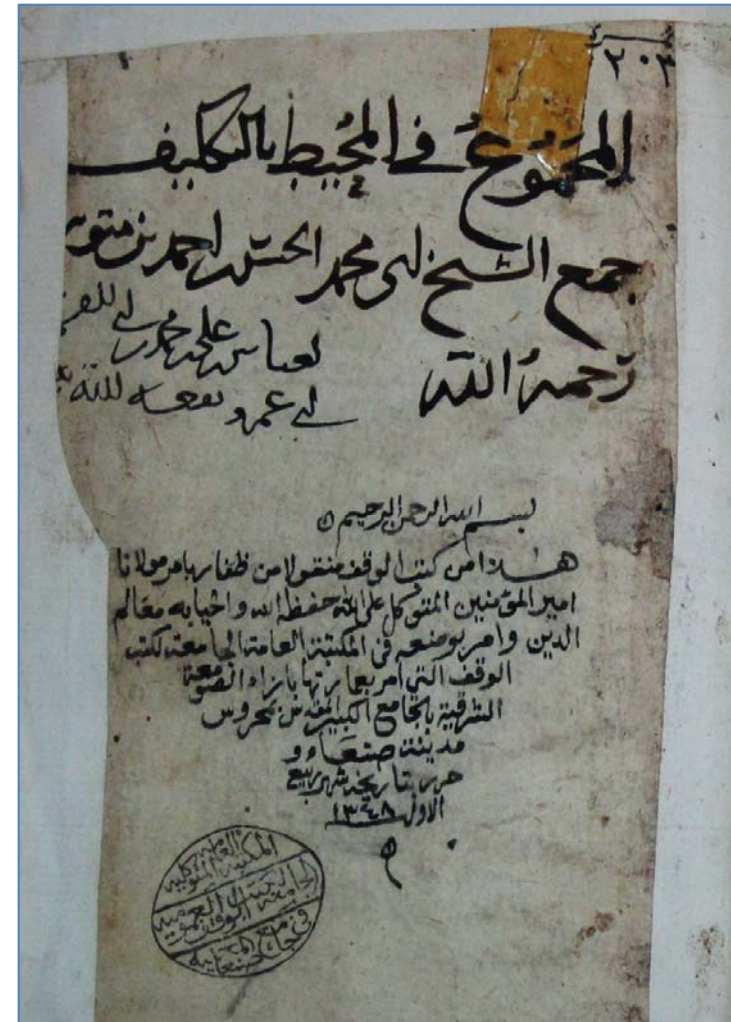 ٢٠٣
المجموع في المحيط بالتكليف
جمع الشيخ ابي محمد الحسن بن احمد بن متويه
رحمه الله
علي بن محمد بن ابي
ابي عمرو نفعه الله
بسم الله الرحمن الرحيم
هذا من كتب الوقف منقولا من ظفار بامر مولانا
امير المؤمنين المتوكل على الله حفظه الله واحيا به معالم
الدين وامر بوضعه في المكتبة العامة الجامعة لكتب
الوقف التي امر بعمارتها بازاء الصومعة
الشرقية بالجامع الكبير المقدس بمحروس
مدينة صنعاء و
حرر بتاريخه شهر ربيع
الاول ١٣٤٨
المكتبة العامة المتوكلية
الجامعة لكتب الوقف العمومية
في جامع صنعاء المحمية